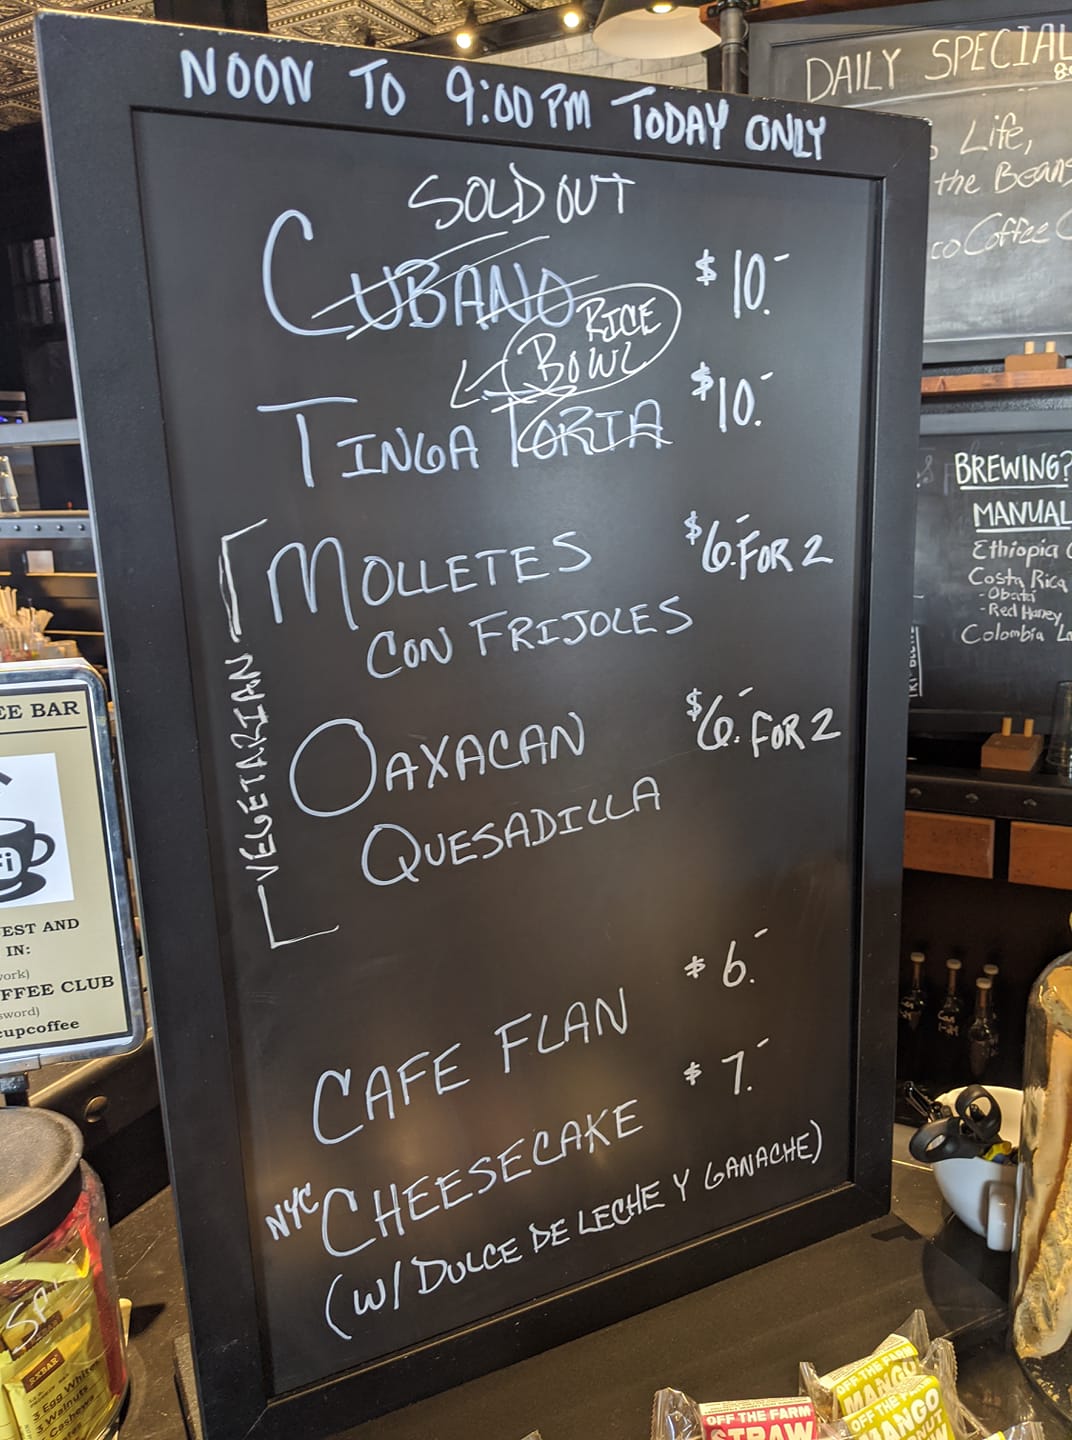 NOON TO 9:00 PM TODAY ONLY
SOLD OUT
CUBANO $10.-
RICE
BOWL
TINGA TORTA $10.-
VEGETARIAN
MOLLETES $6.- FOR 2
CON FRIJOLES
OAXACAN $6.- FOR 2
QUESADILLA
CAFE FLAN $6.-
NYC CHEESECAKE $7.-
(W/ DULCE DE LECHE Y GANACHE)
DAILY SPECIAL
Life,
the Beans
Coffee C
BREWING?
MANUAL
Ethiopia
Costa Rica
- Obata
- Red Honey
Colombia
EE BAR
Fi
EST AND
IN:
work)
FFEE CLUB
sword)
cupcoffee
RXBAR
3 Egg White
3 Walnuts
Cashews
OFF THE FARM
STRAW
OFF THE FARM
MANGO
OFF THE
MANGO
NUT